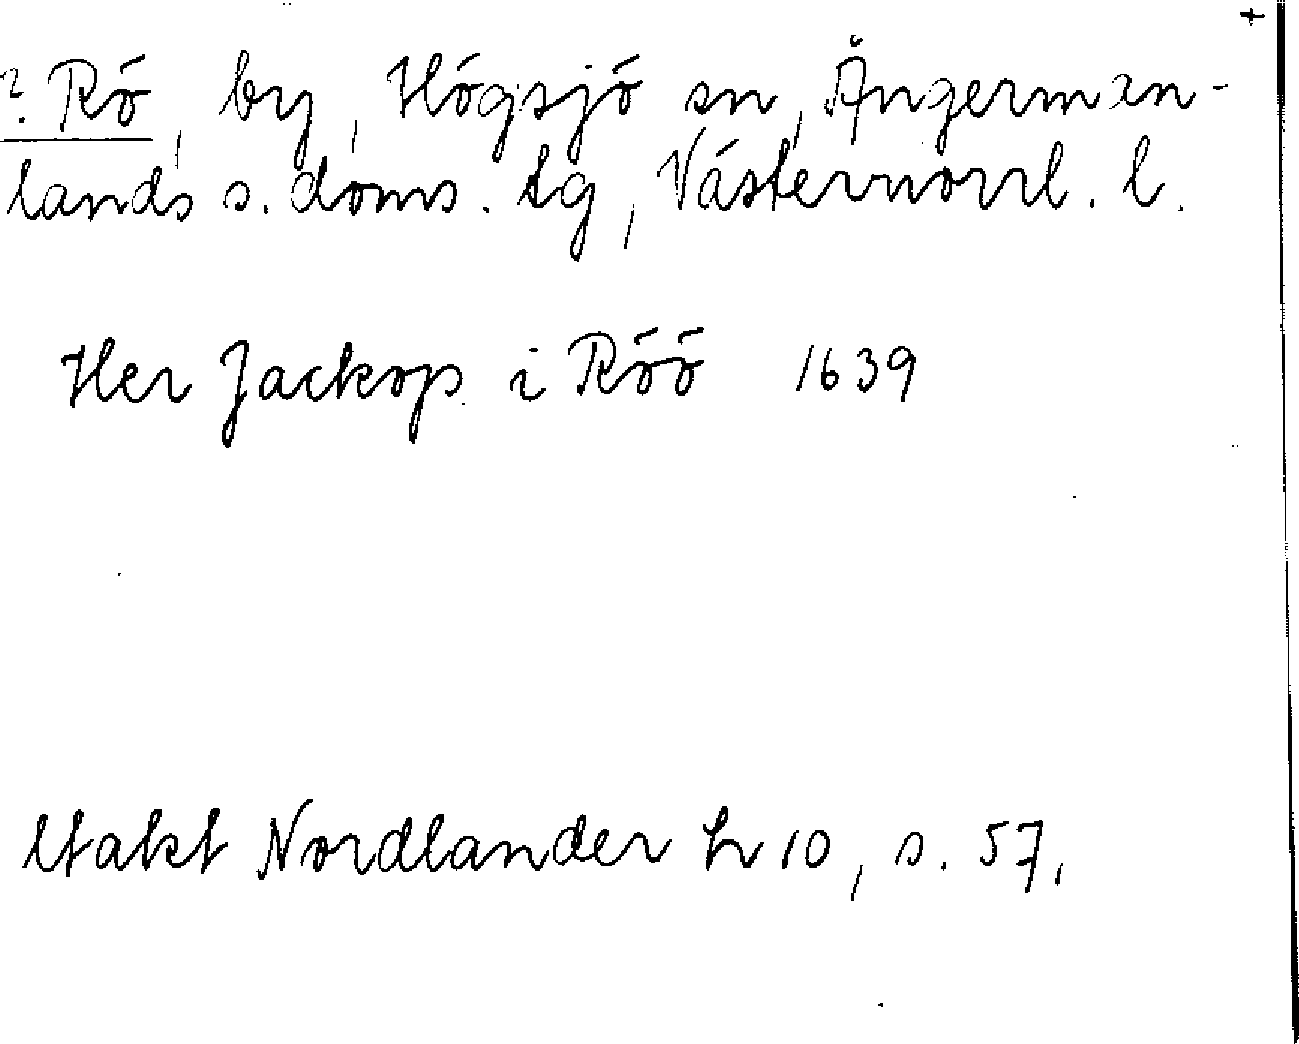 ? Rö, by, Högsjö sn, Ångerman-
lands s. doms. tg, Västernorrl. l.
Her Jackop i Röö 1639
Utakt Nordlander h 10, s. 57.